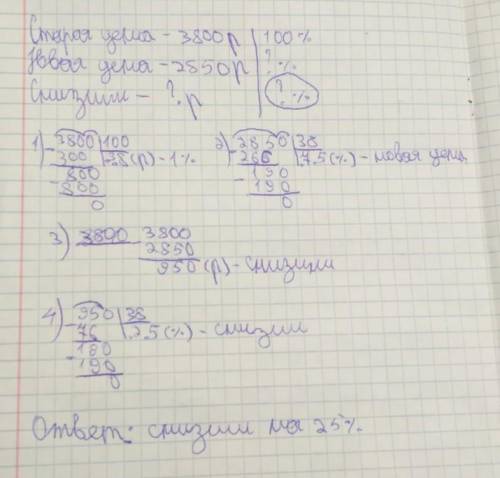 Старая цена - 3800 р | 100%
Новая цена - 2850 р | ? %
Снизили - ? р | ? %
1) 3800 | 100
- 300 | 38 (р) - 1%
800
- 800
0
2) 2850 | 38
- 266 | 75 (%) - новая цена
190
- 190
0
3) 3800
2850
950 (р) - снизили
4) 950 | 38
- 76 | 25 (%) - снизили
190
- 190
0
Ответ: снизили на 25%.